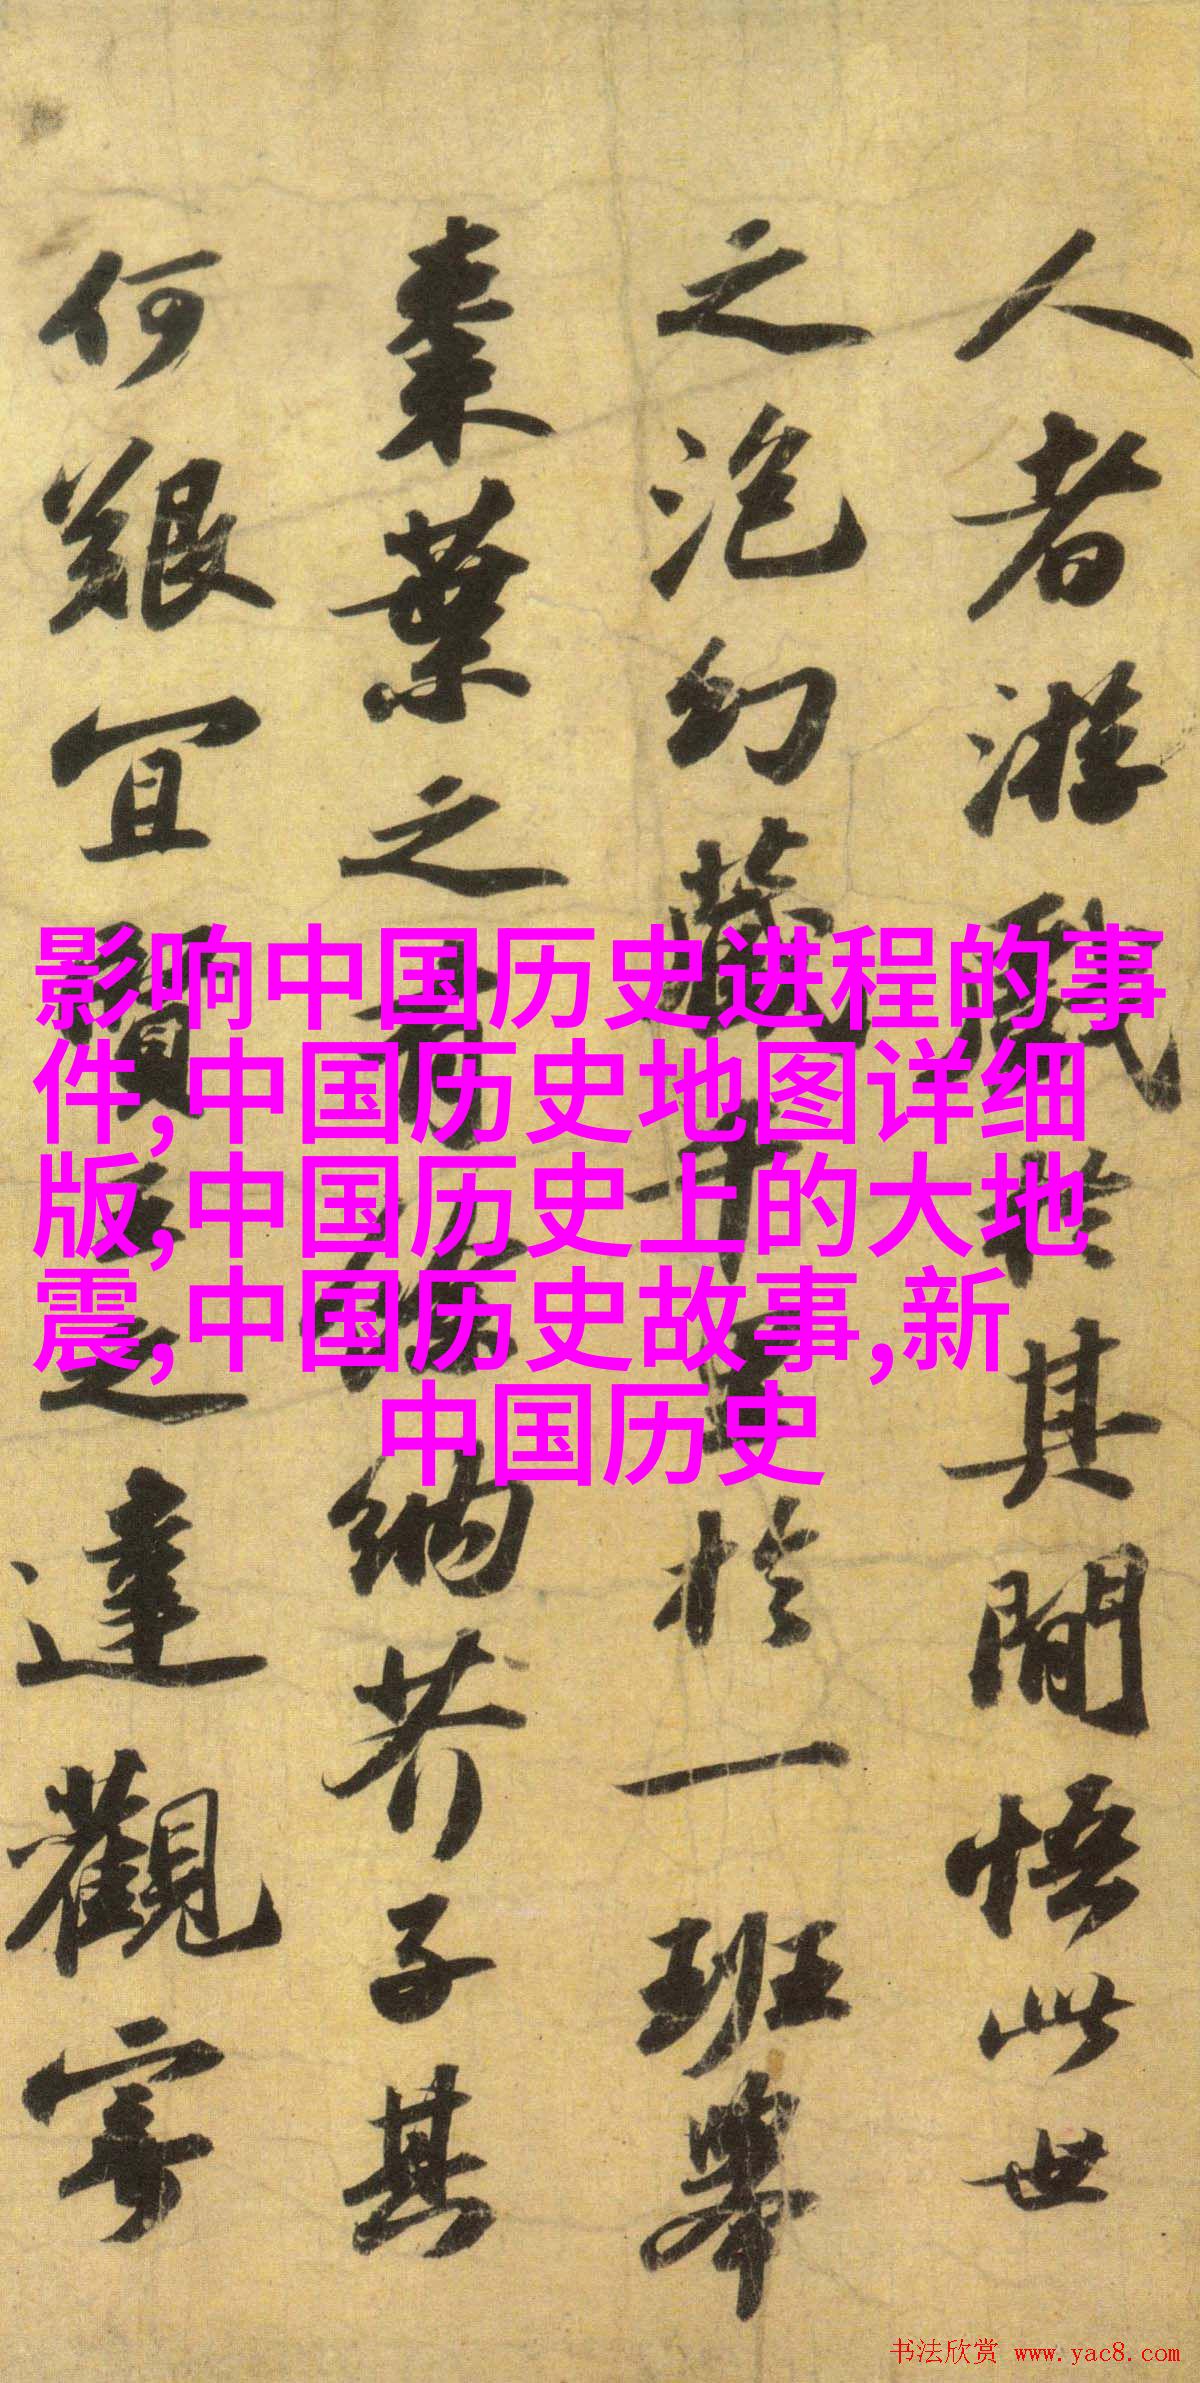 人者游戲於其間悟此世
之泡幻藏千里於一班舉
棗葉之有餘納芥子其
何艱宜賢王之達觀寄
影响中国历史进程的事
件,中国历史地图详细
版,中国历史上的大地
震,中国历史故事,新
中国历史
书法欣赏 www.yac8.com